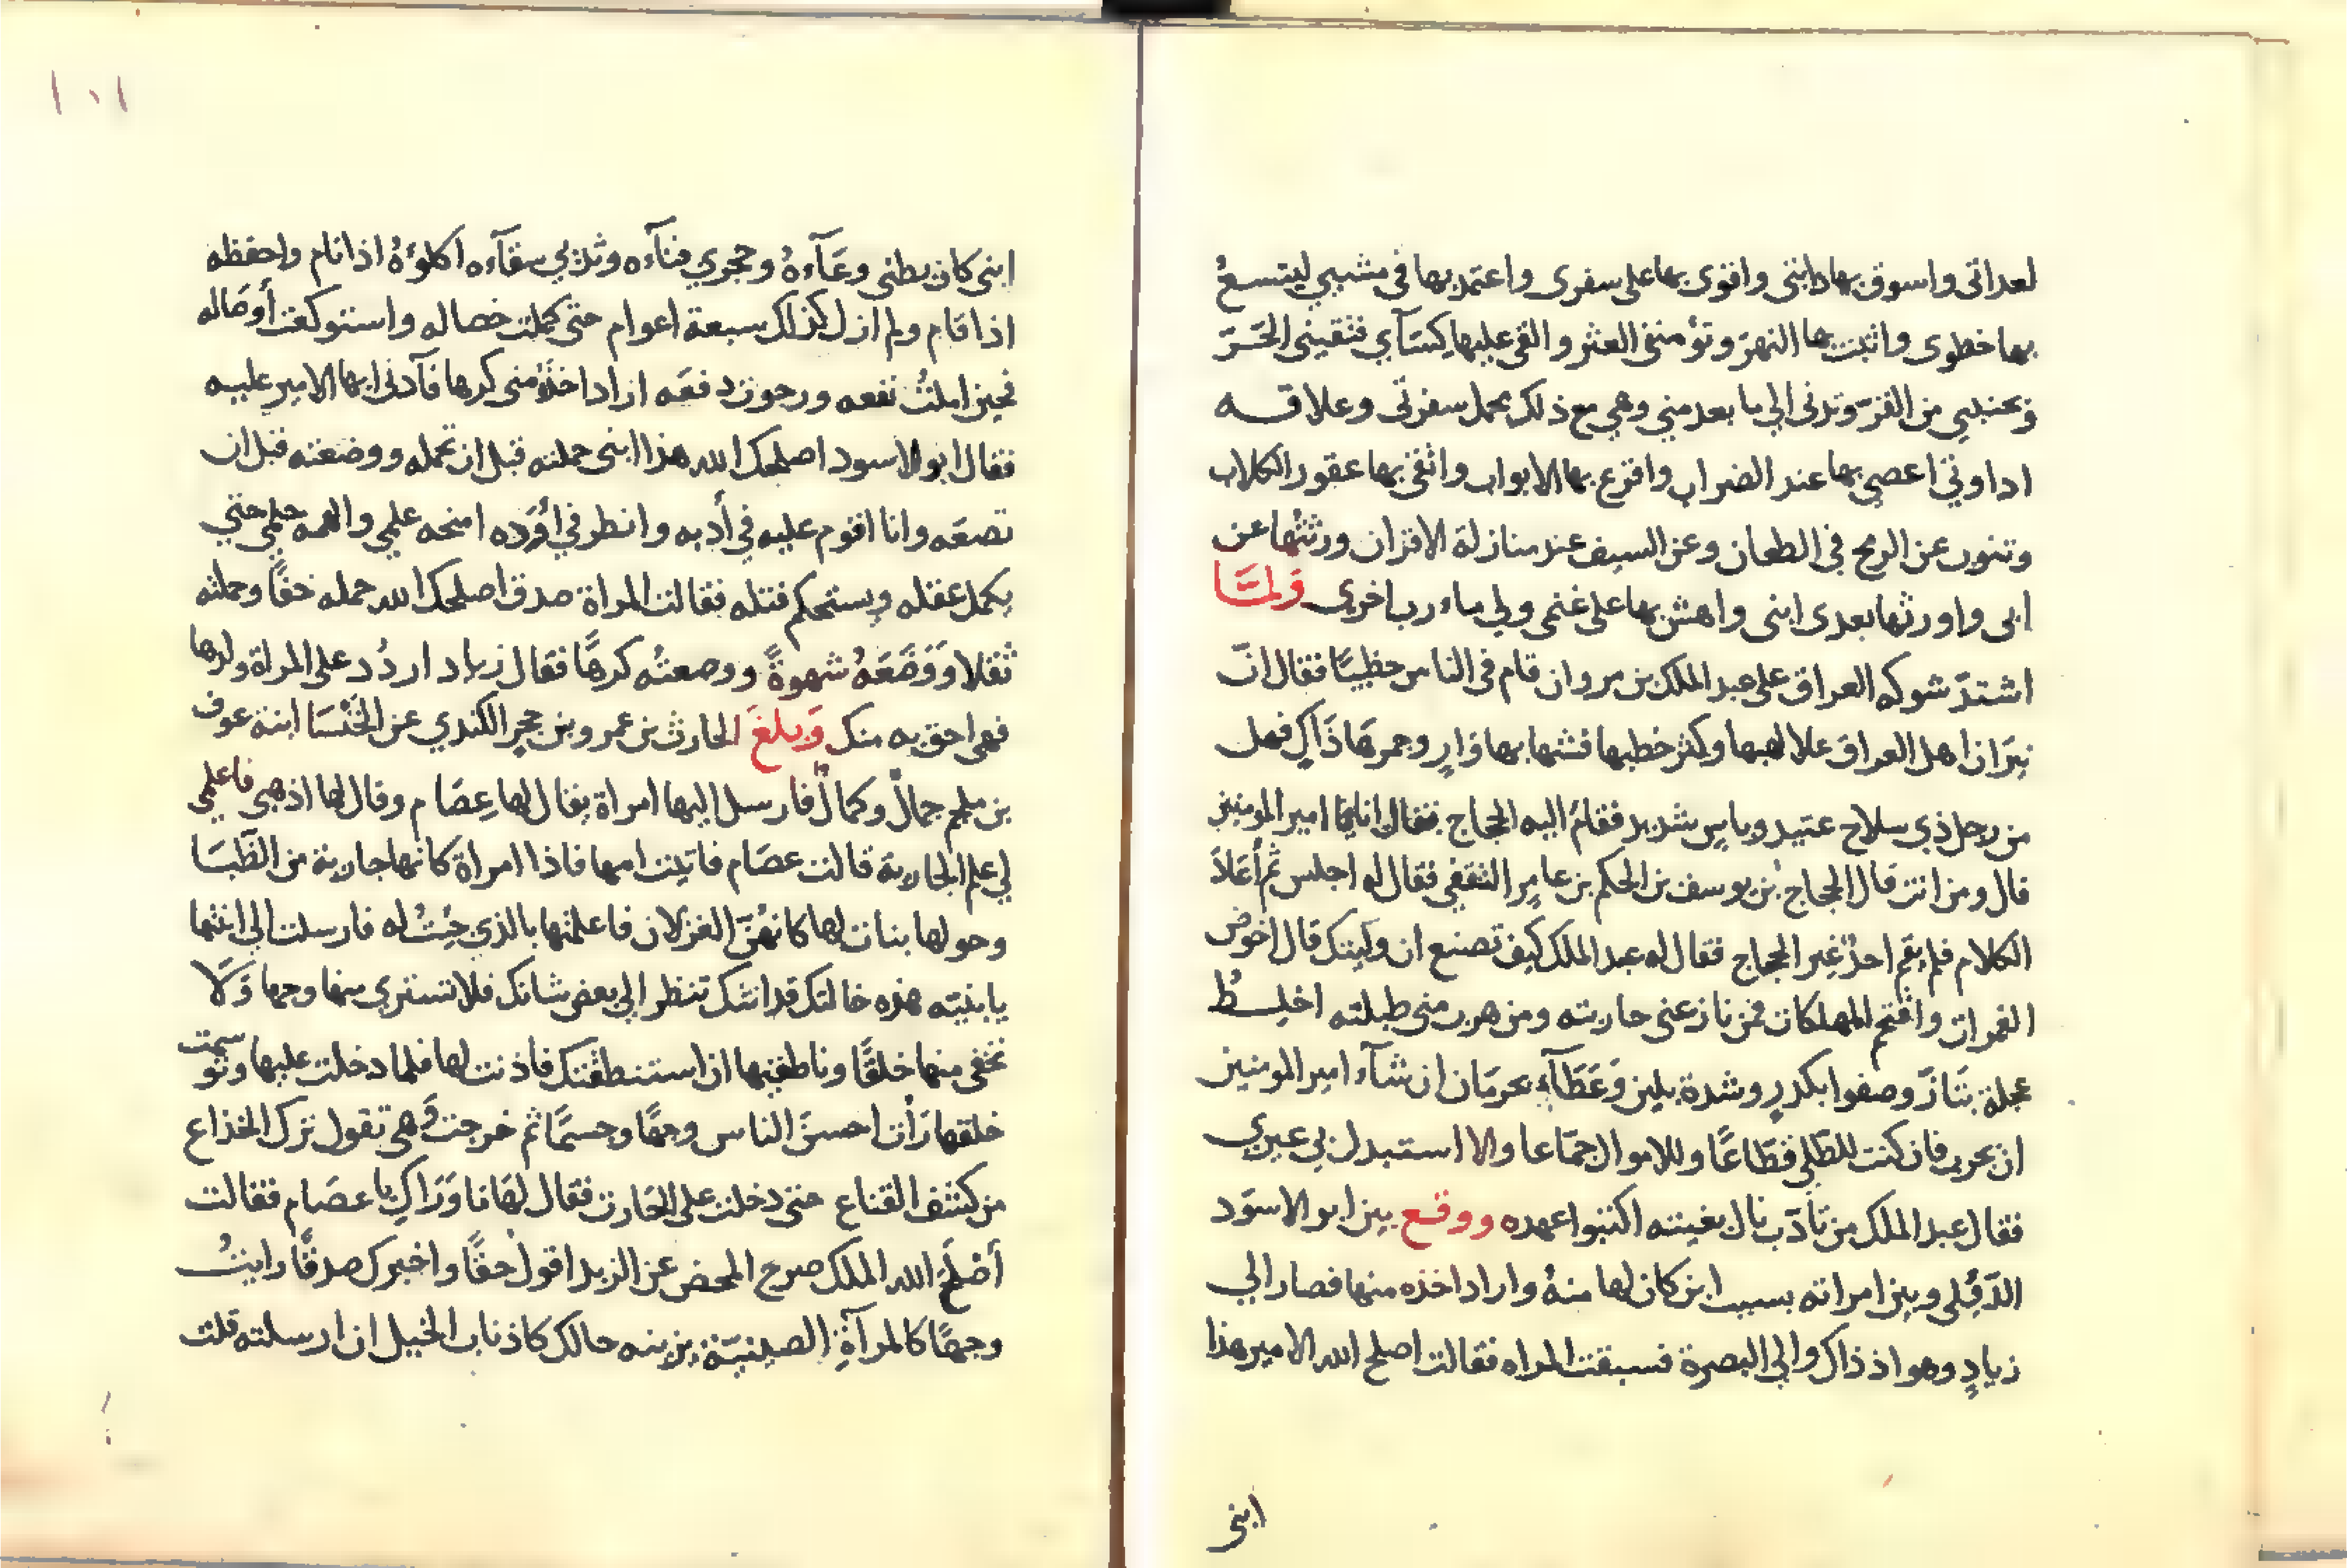 لعداتى واسوق بها دابتى واقوى بها على سفرى واعتمد بها فى مشيي ليتسع
بها خطوى واثبت بها النهر وتؤمننى العثر والقى عليها كسآي فتقينى الحر
وتجنبني من القر وتدنى الي ما بعد منى وهي مع ذلك محمل سفرتى وعلاقه
اداوتي اعصي بها عند الضراب واقرع بها الابواب واتقى بها عقور الكلاب
وتنوب عن الرمح في الطعان وعن السيف عند منازلة الاقران ورثتها عن
ابى واورثها بعدى ابنى واهش بها على غنمى ولي مارب اخرى ولما
اشتد شوكه العراق على عبد الملك بن مروان قام فى الناس خطيبا فقال ان
نيران اهل العراق علا لهبها وكثر خطبها فشهابها وار وجمرها ذاك فهل
من رجل ذى سلاح عتيد وباس شديد فقام اليه الحجاج فقال انا يا امير المومنين
قال ومن انت قال الحجاج بن يوسف بن الحكم بن عامر الثقفى فقال له اجلس ثم أعاد
الكلام فلم يقم احد غير الحجاج فقال له عبد الملك كيف تصنع ان وليتك قال اخوض
الغمرات واقتحم المهلكات فمن نازعنى حاربته ومن هرب منى طلبته اخلط
عجلة بتان وصفوا بكدر وشدة بلين وعطآء بحرمان ان شآء امير المومنين
ان يجرب فان كنت للطلى قطاعا وللاموال جماعا والا استبدل بي غيري
فقال عبد الملك من تادب نال بغيته اكتبوا عهده ووقع بين ابو الاسود
الدؤلى وبين امراته بسبب ابن كان لها منه واراد اخذه منها فصار الي
زياد وهو اذ ذاك والي البصرة فسبقت المراه فقالت اصلح الله الامير هذا
ابنى
١٠١
ابنى كان بطنى وعآءه وحجري فنآءه وثديي سقآءه اكلوءه اذا نام واحفظه
اذا قام ولم ازل كذلك سبعة اعوام حتى كملت خصاله واستوكعت أوصاله
فحين املت نفعه ورجوت دفعه اراد اخذه منى كرها فآدنى ايها الامير عليه
فقال ابو الاسود اصلحك الله هذا ابنى حملته قبل ان تحمله ووضعته قبل ان
تضعه وانا اقوم عليه في أدبه وانظر في أوده امنحه علمي والهمه حلمي حتى
يكمل عقله ويستحكم فتله فقالت المراة صدق اصلحك الله حمله خفا وحملته
ثقلا ووضعه شهوة ووضعته كرها فقال زياد اردد على المراة ولدها
فهى احق به منك وبلغ الحارث بن عمرو بن حجر الكندي عن الخنسا ابنة عوف
بن ملحم جمال وكمال فارسل اليها امراة يقال لها عصام وقال لها اذهبى فاعلمي
لي علم الجارية قالت عصام فاتيت امها فاذا امراة كانها جارية من الظبا
وحولها بنات لها كانهن الغزلان فاعلمتها بالذي جئت له فارسلت الي ابنتها
يا بنيته هذه خالتك قد اتتك تنظر الي بعض شانك فلا تستري منها وجها ولا
تخفى منها خلقا وناطقيها ان استنطقتك فاذنت لها فلما دخلت عليها وتوسمت
خلقها رات احسن الناس وجها وجسما ثم خرجت وهى تقول ترك الخداع
من كشف القناع حتى دخلت على الحارث فقال لها ما وراك يا عصام فقالت
أصلح الله الملك صرح المحض عن الزبد اقول حقا واخبرك صدقا رايت
وجها كالمرآة الصينية يزينه حالك كاذناب الخيل ان ارسلته قلت